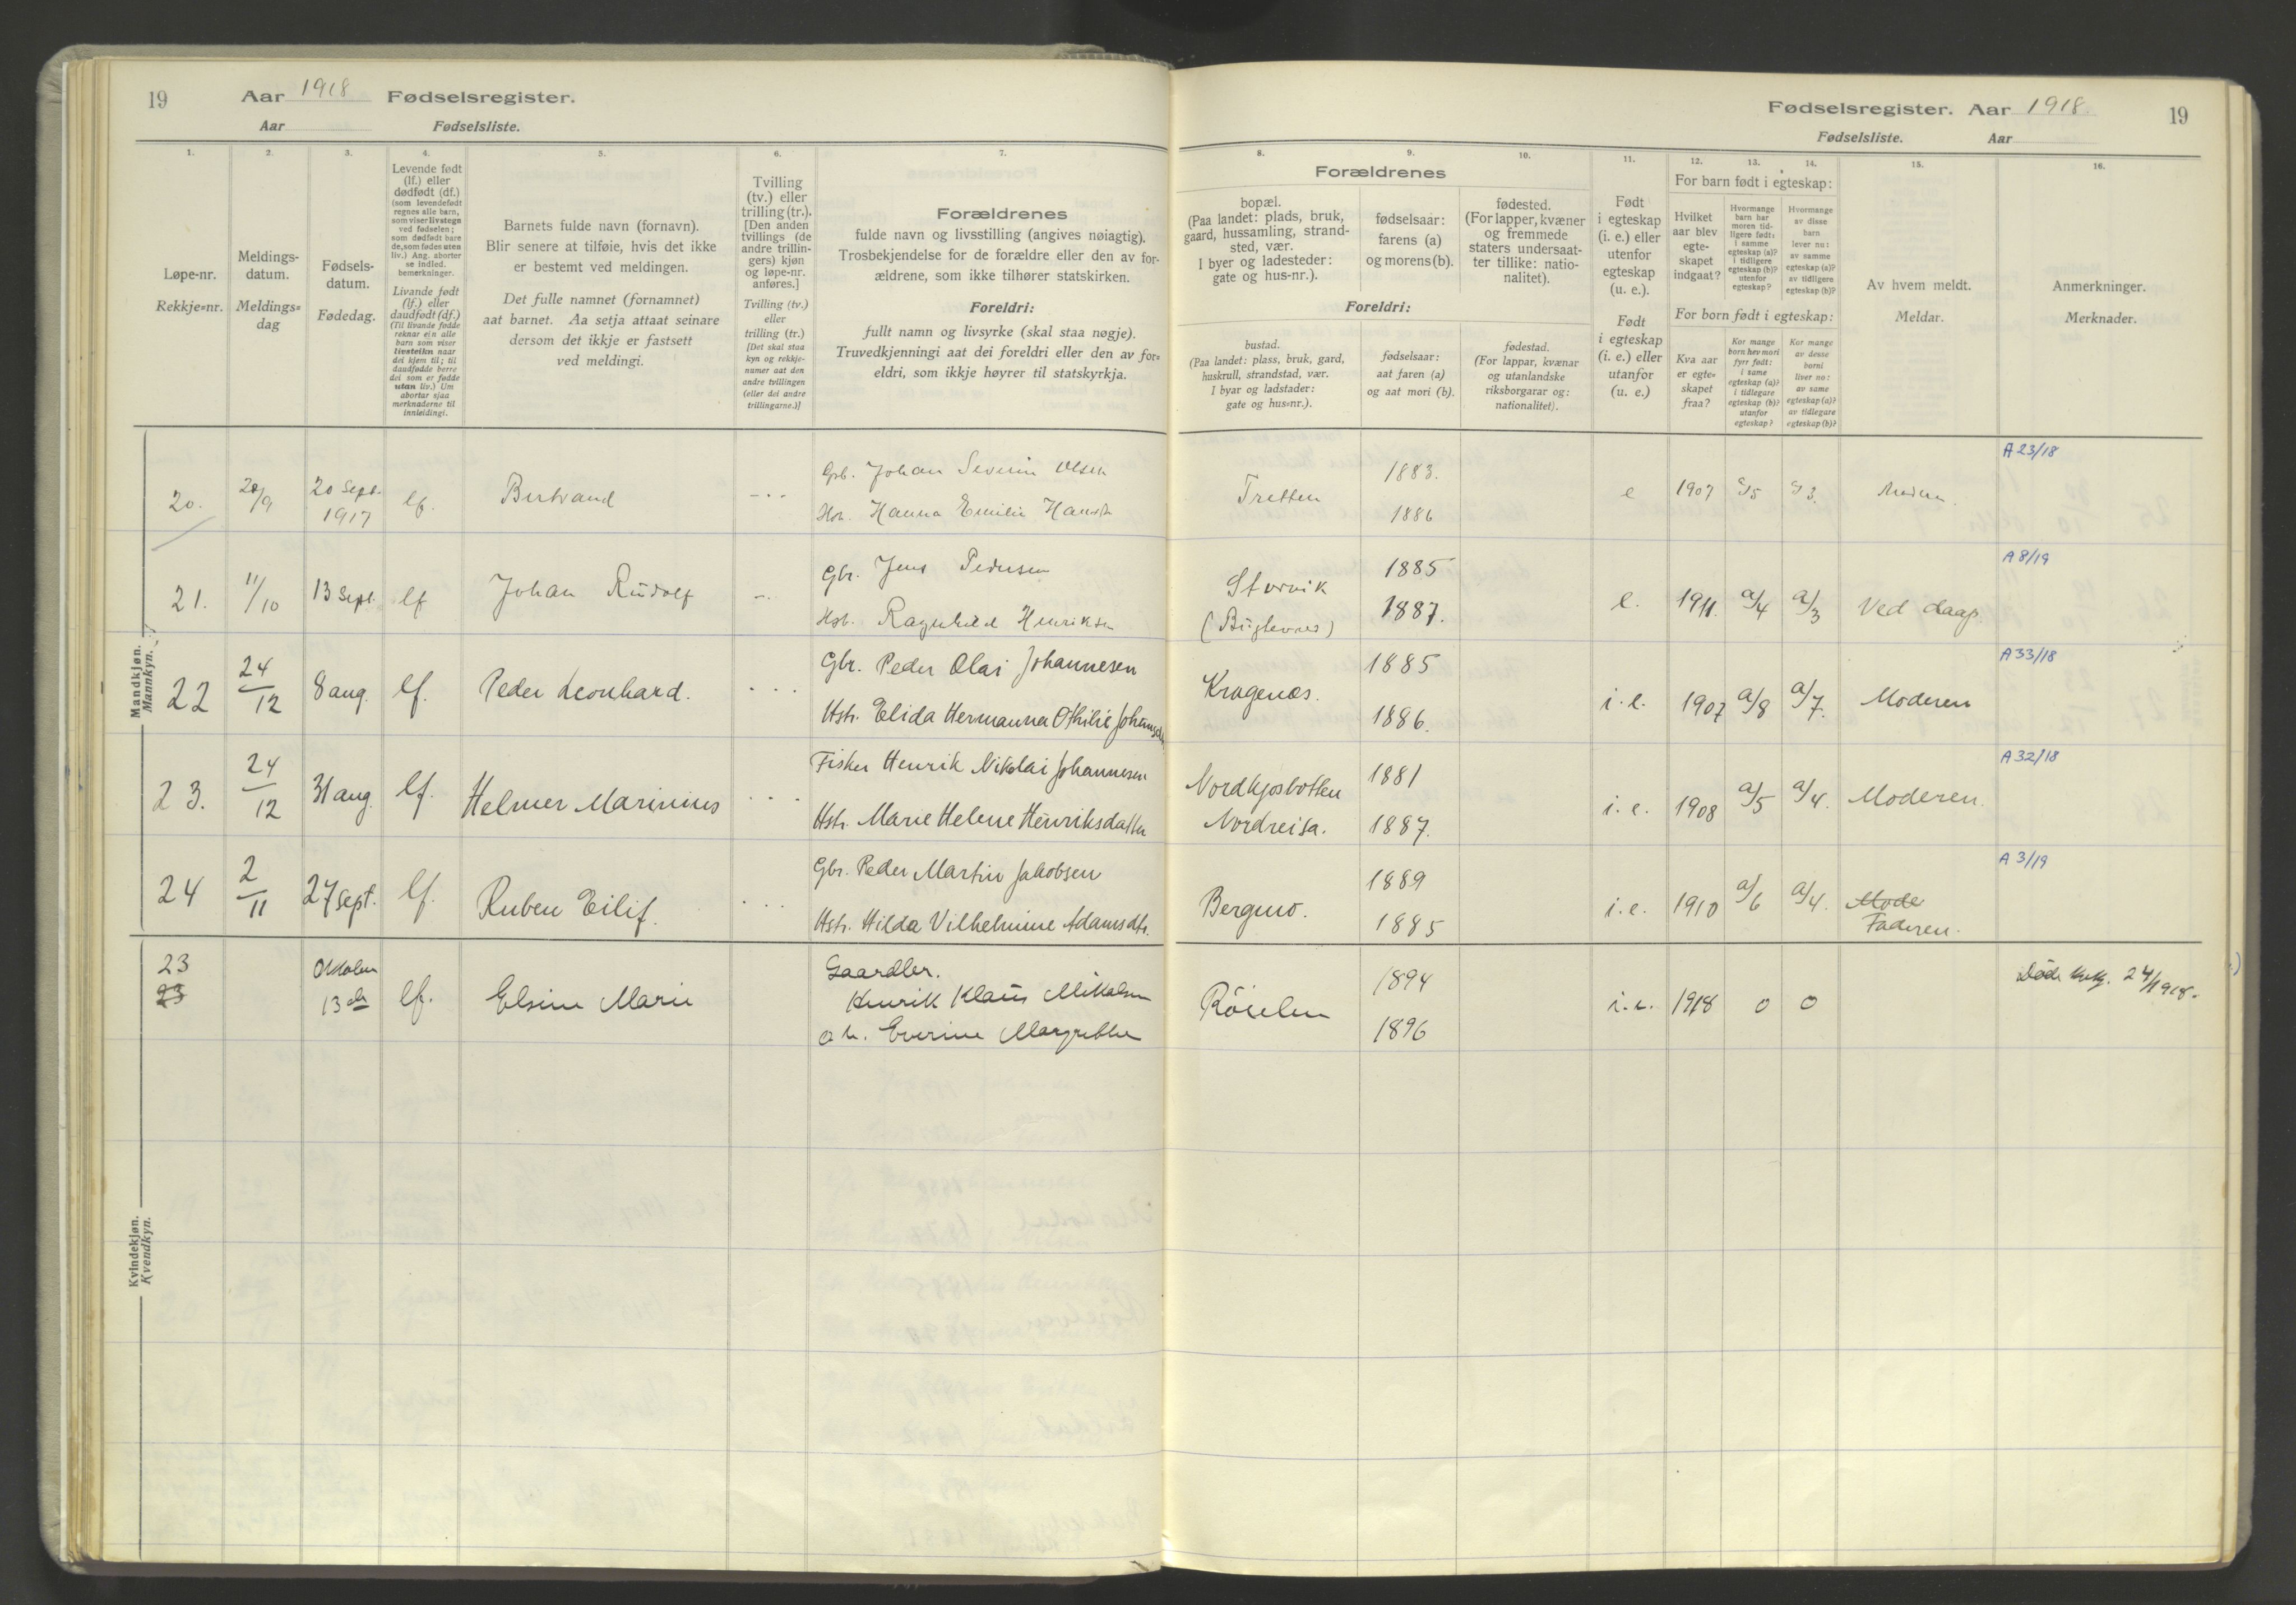 19 Aar 1918 Fødselsregister.
Aar Fødselsliste.
Fødselsregister. Aar 1918. 19
Fødselsliste. Aar
1. 2. 3. 4. 5. 6. 7.
Løpe-nr.
Rekkje-nr.
Meldings-
datum.
Meldings-
dag
Fødsels-
datum.
Fødedag.
Levende født
(lf.) eller
dødfødt (df.)
(som levendefødt
regnes alle barn,
som viser livstegn
ved fødselen;
som dødfødt bare
de, som fødes uten
liv.) Ang. aborter
se indled.
bemerkninger.
Livande født
(lf.) eller
daudfødt (df.)
(Til livande fødde
reknar ein alle
barn som viser
livsteikn naar
dei kjem til; til
daudfødde berre
dei som er fødde
utan liv.) Um
abortar sjaa
merknaderne til
innleidingi.
Barnets fulde navn (fornavn).
Blir senere at tilføie, hvis det ikke
er bestemt ved meldingen.
Det fulle namnet (fornamnet)
aat barnet. Aa setja attaat seinare
dersom det ikkje er fastsett
ved meldingi.
Tvilling
(tv.) eller
trilling (tr.).
[Den anden
tvillings (de
andre trillin-
gers) kjøn
og løpe-nr.
anføres.]
Tvilling (tv.)
eller
trilling (tr.)
[Det skal staa
kyn og rekkje-
numer aat den
andre tvillingen
(eller dei andre
trillingarne.)]
Forældrenes
fulde navn og livsstilling (angives nøiagtig).
Trosbekjendelse for de forældre eller den av for-
ældrene, som ikke tilhører statskirken.
Foreldri:
fullt namn og livsyrke (skal staa nøgje).
Truvedkjenningi aat dei foreldri eller den av for-
eldri, som ikkje høyrer til statskyrkja.
8. 9. 10. 11. 12. 13. 14. 15. 16.
Forældrenes
bopæl.
(Paa landet: plads, bruk,
gaard, hussamling, strand-
sted, vær.
I byer og ladesteder:
gate og hus-nr.).
fødselsaar:
farens (a)
og morens (b).
fødested.
(For lapper, kvæner
og fremmede
staters undersaat-
ter tillike: natio-
nalitet).
Foreldri:
bustad.
(Paa landet: plass, bruk, gard,
huskrull, strandstad, vær.
I byar og ladstader:
gate og hus-nr.).
fødselsaar:
aat faren (a)
og aat mori (b).
fødestad.
(For lappar, kvænar
og utanlandske
riksborgarar og:
nationalitet).
Født
i egteskap
(i. e.) eller
utenfor
egteskap
(u. e.).
Født
i egteskap
(i. e.) eller
utanfor
(u. e.)
For barn født i egteskap:
Hvilket
aar blev
egte-
skapet
indgaat?
Hvormange
barn har
moren tid-
ligere født:
i samme
egteskap (a)?
i tidligere
egteskap (b)?
utenfor
egteskap?
Hvormange
av disse
barn
lever nu:
av samme
egteskap (a)?
av tidligere
egteskap (b)?
For born født i egteskap:
Kva aar
er egte-
skapet
fraa?
Kor mange
born hev mori
fyrr født:
i same
egteskap (a)?
i tidlegare
egteskap (b)?
utanfor
egteskap?
Kor mange
av desse
borni
liver no:
av same
egteskap (a)?
av tidlegare
egteskap (b)?
Av hvem meldt.
Meldar.
Anmerkninger.
Merknader.
Mandkjøn.
Mannkyn.
A 23/18
20. 28/9 20 Sept. 1917 lf. Bertrand Gbr. Johan Severin Olsen Tretten 1883. e 1907 a/5 a/3.
Hst. Hanna Emilie 1886
A 8/19
21. 11/10 13 Sept. lf Johan Rudolf Gbr. Jens Pedersen Storvik 1885 e. 1911. a/4 a/3 Ved daap.
Hst. Ragnhild Henriksen 1887.
A 33/18
22 24/12 8 aug. lf. Peder Leonhard. Gbr. Peder Olai Johannesen Kragenæs. 1885 i. e. 1907 a/8 a/7. Moderen
Hstr. Elida Hermanna Othilie Johansdtr. 1886.
A 32/18
23. 24/12 31 aug. lf. Helmer Marinius Fisker Henrik Nikolai Johannesen Nordkjosbotten 1881 i. e. 1908 a/5 a/4. Moderen.
Hstr. Marie Helene Henriksdatter Nordreisa. 1887.
A 3/19
24 2/11 27 sept. lf. Ruben Eilif. Gbr. Peder Martin Jakobsen Bergmo. 1889 i. e. 1910 a/6 a/4. Mode
Hstr. Hilda Vilhelmine Adamsdtr. 1885 Faderen.
Kvindekjøn.
Kvendkyn.
23 Oktober Gaardbr. 1894
23 13de lf. Elsine Marie Henrik Klaus Mikalsen Röielen i. e. 1918 0 0 24/1918.
o h. Everine Margrethe 1896